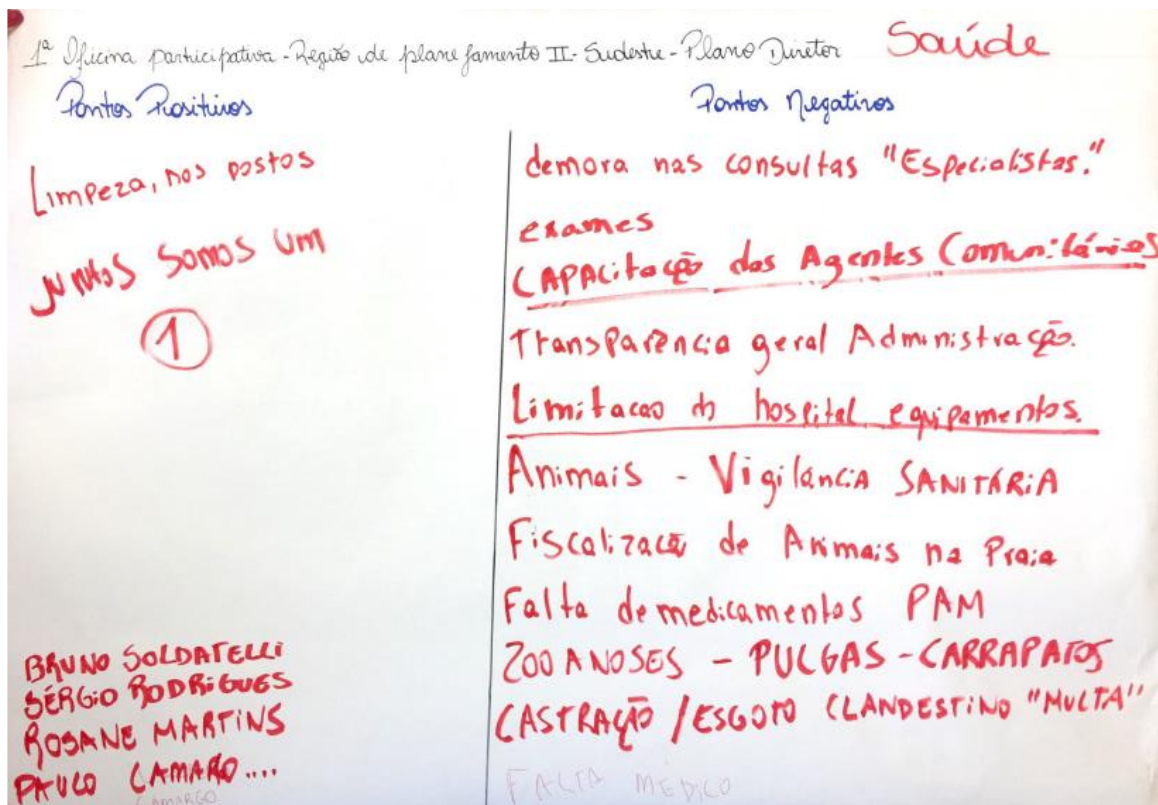 1ª Oficina participativa - Região de planejamento II - Sudeste - Plano Diretor
Saúde
Pontos Positivos
Limpeza, nos postos
JUNTOS SOMOS UM
1
BRUNO SOLDATELLI
SÉRGIO RODRIGUES
ROSANE MARTINS
PAULO CAMARO....
CAMARGO
Pontos Negativos
demora nas consultas "Especialistas."
exames
CAPACitação dos Agentes Comunitários
Transparência geral Administração.
Limitacao do hospital equipamentos.
Animais - Vigilância SANITÁRIA
Fiscalização de Animais na Praia
Falta de medicamentos PAM
ZOOANOSES - PULGAS - CARRAPATOS
CASTRAÇÃO / ESGOTO CLANDESTINO "MULTA"
FALTA MÉDICO